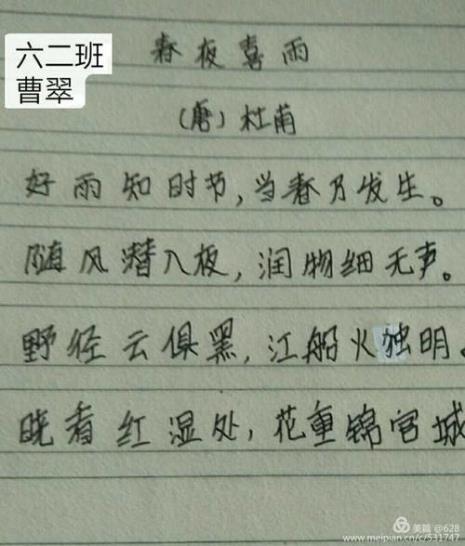 六二班
曹翠
春夜喜雨
（唐）杜甫
好雨知时节，当春乃发生。
随风潜入夜，润物细无声。
野径云俱黑，江船火独明。
晓看红湿处，花重锦官城
美篇 @628
www.meipian.cn/c/531747